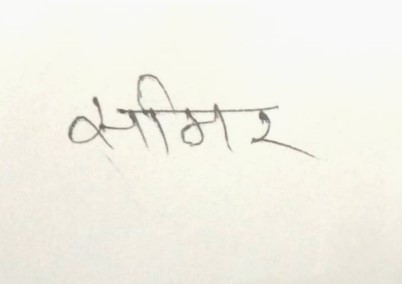 सामिर